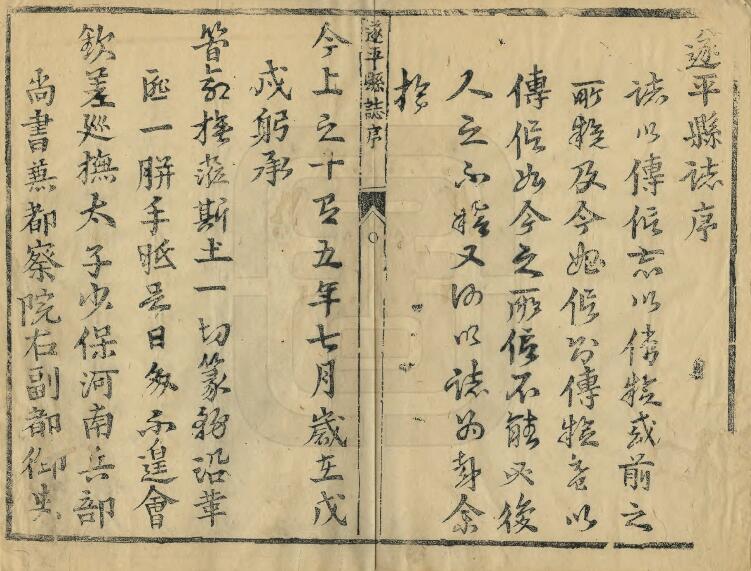 遂平縣誌序
誌以傳信亦以傳疑或前之
所疑及今始信為傳疑意以
傳信如今之所信不能必後
人之不疑又何以誌為余
於
遂平縣誌序
今上之十五年七月歲在戊
戌躬承
簡命撫蒞斯土一切篆務沿革
匪一胼手胝足日夕不遑會
欽差巡撫太子少保河南兵部
尚書兼都察院右副都御史